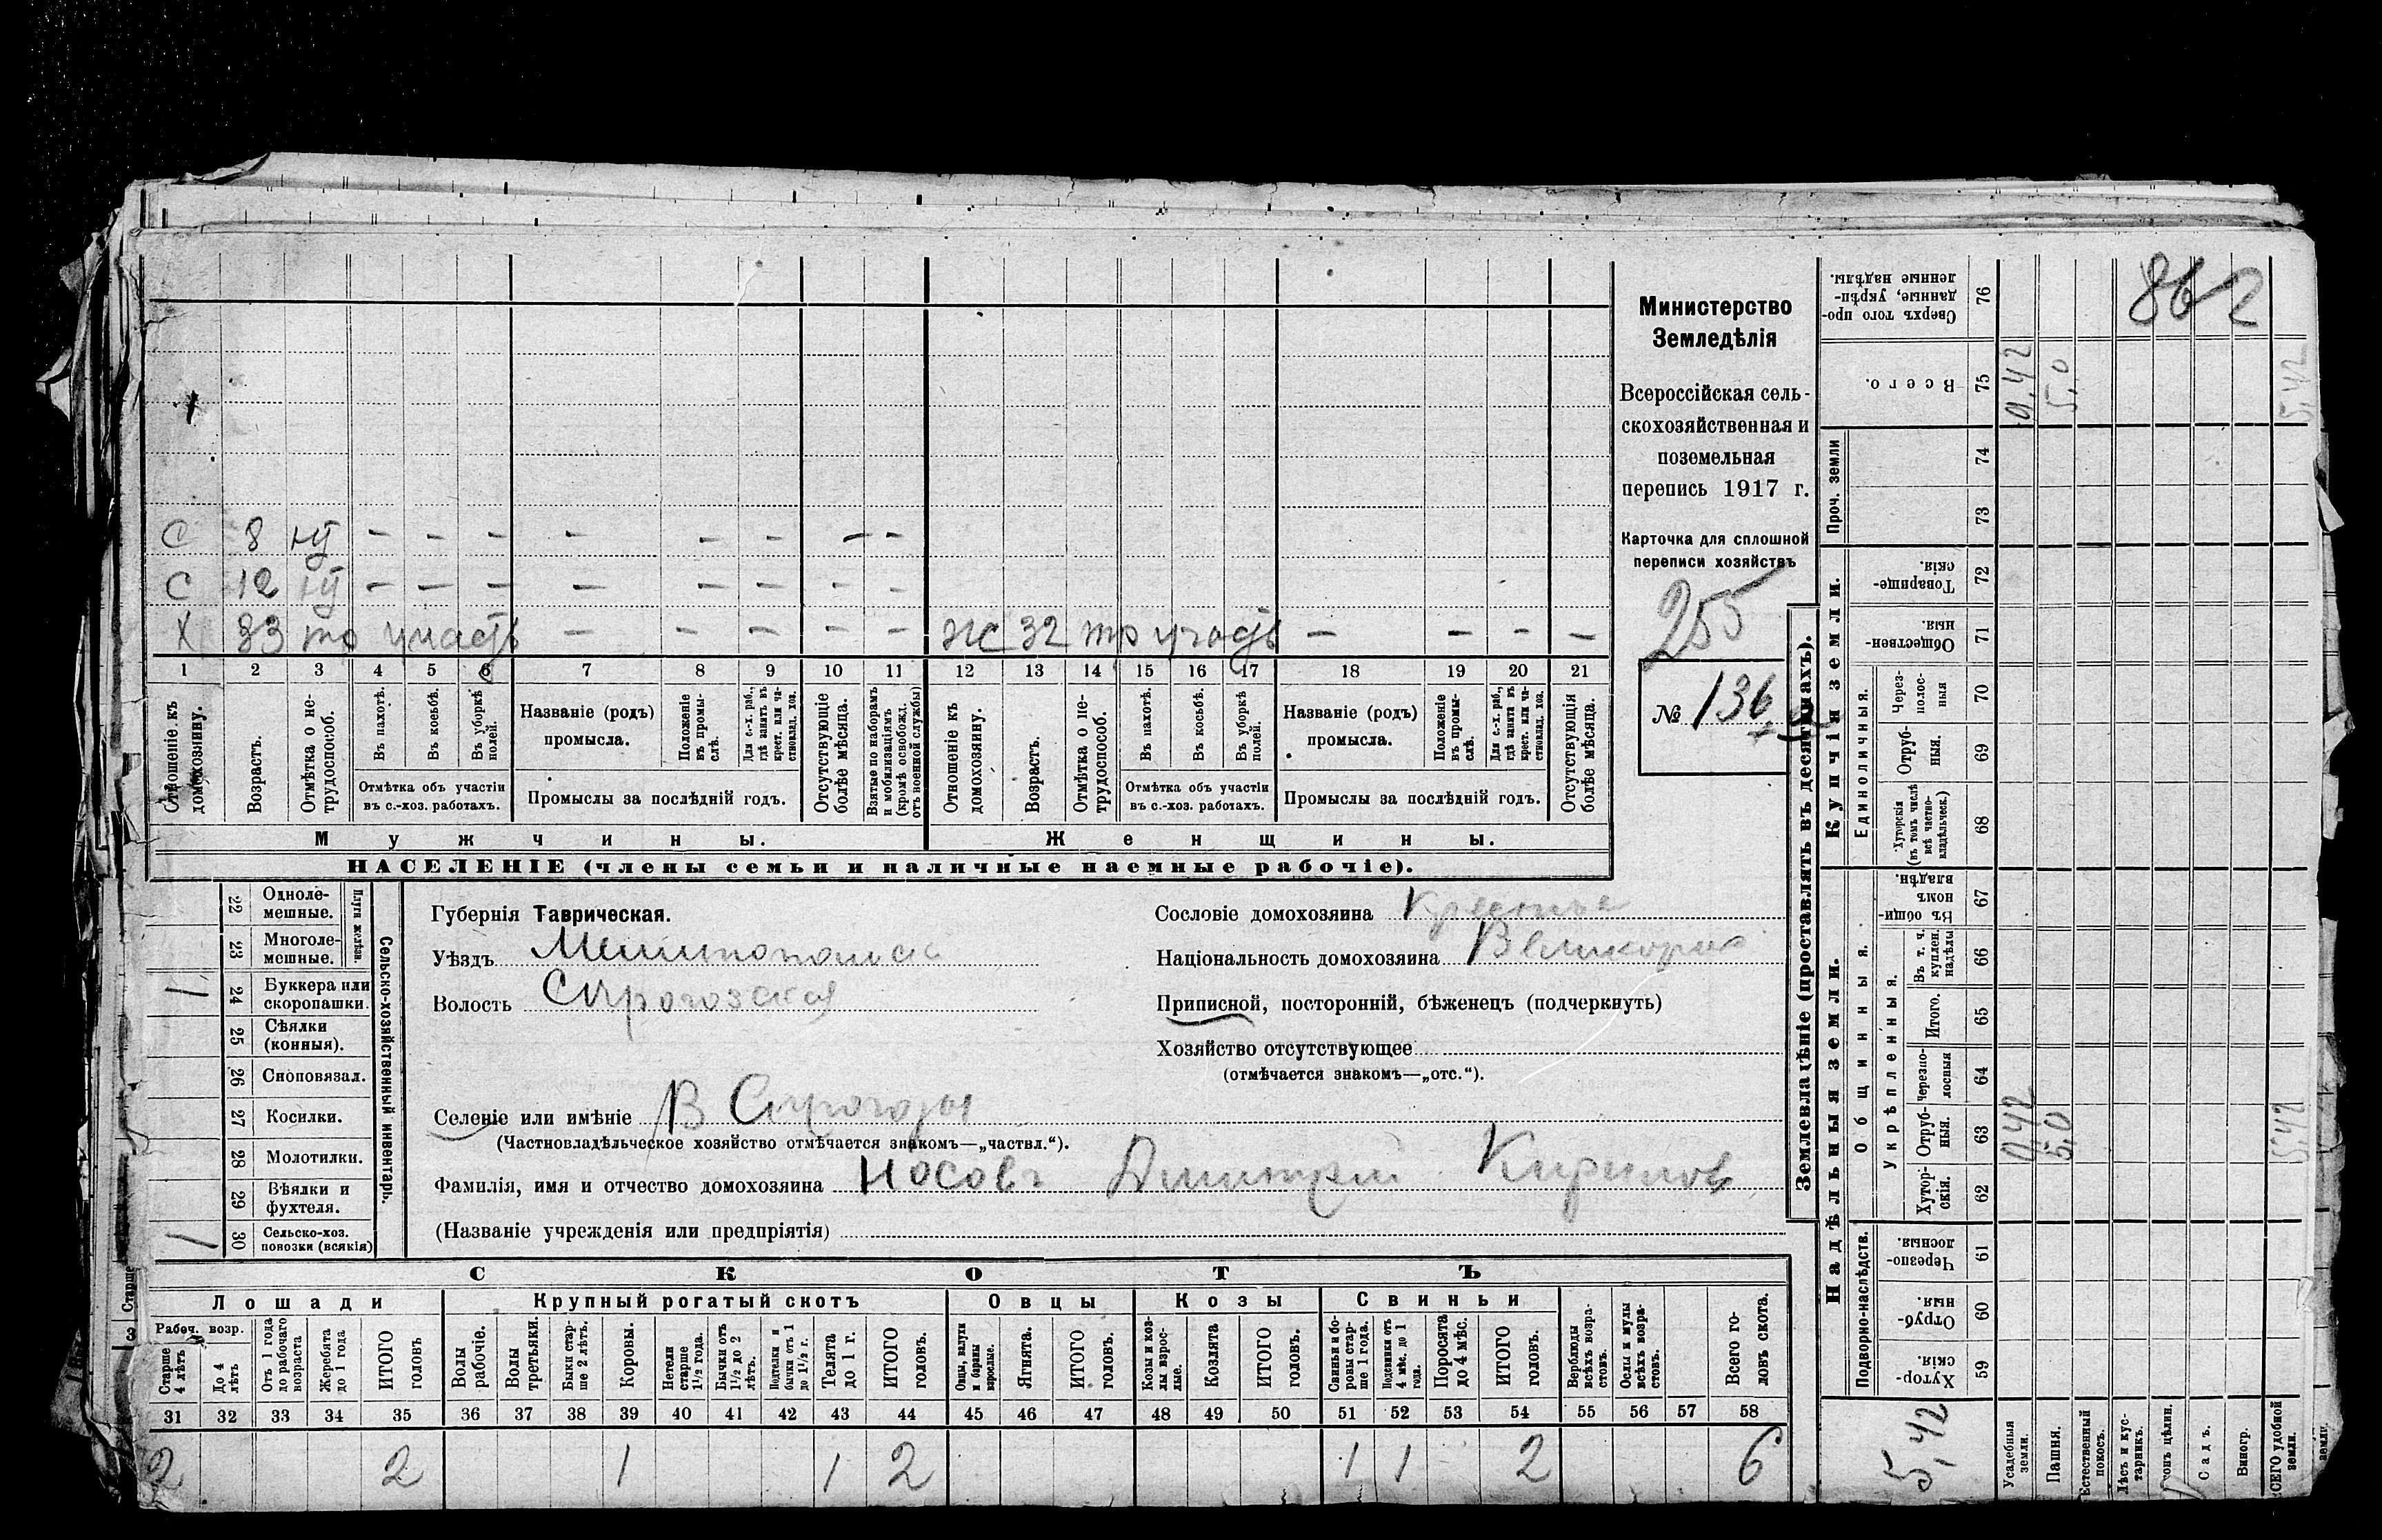 862
Министерство
Земледѣлія
Всероссійская сель-
скохозяйственная и
поземельная
перепись 1917 г.
Карточка для сплошной
переписи хозяйствъ
255
№ 136
С 8 — — — — — — — —
С 12 — — — — — — — —
Х 33 тр участъ — — — — — Ж 32 тр участъ — — — —
1 2 3 4 5 6 7 8 9 10 11 12 13 14 15 16 17 18 19 20 21
Отношеніе къ домохозяину.
Возрастъ.
Отмѣтка о не-трудоспособ.
Въ пахотѣ.
Въ косьбѣ.
Въ уборкѣ полей.
Отмѣтка объ участіи
въ с.-хоз. работахъ.
Названіе (родъ)
промысла.
Положеніе въ промы-слѣ.
Для с.-х. раб., гдѣ занятъ въ крест. или ча-стновлад. хоз.
Промыслы за послѣдній годъ.
Отсутствующіе болѣе мѣсяца.
Взятые по наборамъ и мобилизаціямъ (кромѣ освобожд. отъ военной службы)
Отношеніе къ домохозяину.
Возрастъ.
Отмѣтка о не-трудоспособ.
Въ пахотѣ.
Въ косьбѣ.
Въ уборкѣ полей.
Отмѣтка объ участіи
въ с.-хоз. работахъ.
Названіе (родъ)
промысла.
Положеніе въ промы-слѣ.
Для с.-х. раб., гдѣ занята въ крест. или ча-стновлад. хоз.
Промыслы за послѣдній годъ.
Отсутствующія болѣе мѣсяца.
Мужчины.
Женщины.
НАСЕЛЕНІЕ (члены семьи и наличные наемные рабочіе).
Сельско-хозяйственный инвентарь.
Плуги желѣзн.
22 Одноле-мешные.
23 Многоле-мешные.
1 24 Буккера или скоропашки.
25 Сѣялки (конныя).
26 Сноповязал.
27 Косилки.
28 Молотилки.
29 Вѣялки и фухтеля.
1 30 Сельско-хоз. повозки (всякія)
Губернія Таврическая.
Уѣздъ Мелитопольск
Волость Сѣрогозская
Селеніе или имѣніе В Сѣрогозы
(Частновладѣльческое хозяйство отмѣчается знакомъ—„частвл.“).
Фамилія, имя и отчество домохозяина Носовъ Дмитрій Кириловъ
(Названіе учрежденія или предпріятія)
Сословіе домохозяина
Національность домохозяина Великорос
Приписной, посторонній, бѣженецъ (подчеркнуть)
Хозяйство отсутствующее
(отмѣчается знакомъ—„отс.“).
СКОТЪ
Лошади
Крупный рогатый скотъ
Овцы
Козы
Свиньи
Рабоч. возр.
Старше 4 лѣтъ
До 4 лѣтъ
Отъ 1 года до рабочаго возраста
Жеребята до 1 года
ИТОГО головъ
Волы рабочіе.
Волы третьяки.
Быки стар-ше 2 лѣтъ.
Коровы.
Нетели старше 1½ года.
Бычки отъ 1½ до 2 лѣтъ.
Подтелки и бычки отъ 1 до 1½ г.
Телята до 1 г.
ИТОГО головъ.
Овцы, валухи и бараны взрослые.
Ягнята.
ИТОГО головъ.
Козы и коз-лы взрос-лые.
Козлята
ИТОГО головъ.
Свиньи и бо-ровы стар-ше 1 года.
Подсвинки отъ 4 мѣс. до 1 года.
Поросята до 4 мѣс.
ИТОГО головъ.
Верблюды всѣхъ возра-стовъ.
Ослы и мулы всѣхъ возра-стовъ.
Всего го-ловъ скота.
31 32 33 34 35 36 37 38 39 40 41 42 43 44 45 46 47 48 49 50 51 52 53 54 55 56 57 58
2 2 1 1 2 1 1 2 6
Землевладѣніе (проставлять въ десятинахъ).
Надѣльныя земли.
Купчія земли.
Проч. земли
Подворно-наслѣдств.
Общинныя.
Укрѣпленныя.
Единоличныя.
Хутор-скія. 59
Отруб-ныя. 60
Черезпо-лосныя. 61
Хутор-скія. 62
Отруб-ныя. 63
Черезпо-лосныя 64
Итого. 65
Въ т. ч. куплен. надѣлы 66
Въ общи-номъ владѣн. 67
Хуторскія (въ томъ числѣ всѣ частно-владѣльческ.) 68
Отруб-ныя. 69
Через-полос-ныя 70
Обществен-ныя. 71
Товарище-скія. 72
73
74
Всего. 75
Сверхъ того про-данные, укрѣп-ленные надѣлы. 76
Усадебныя земли.
Пашня.
Естественный покосъ.
Лѣсъ и кус-тарникъ.
Садъ.
Виногр.
ВСЕГО удобной земли.
0,42 5,0 5,42
0,42 5,0 5,42
5,42